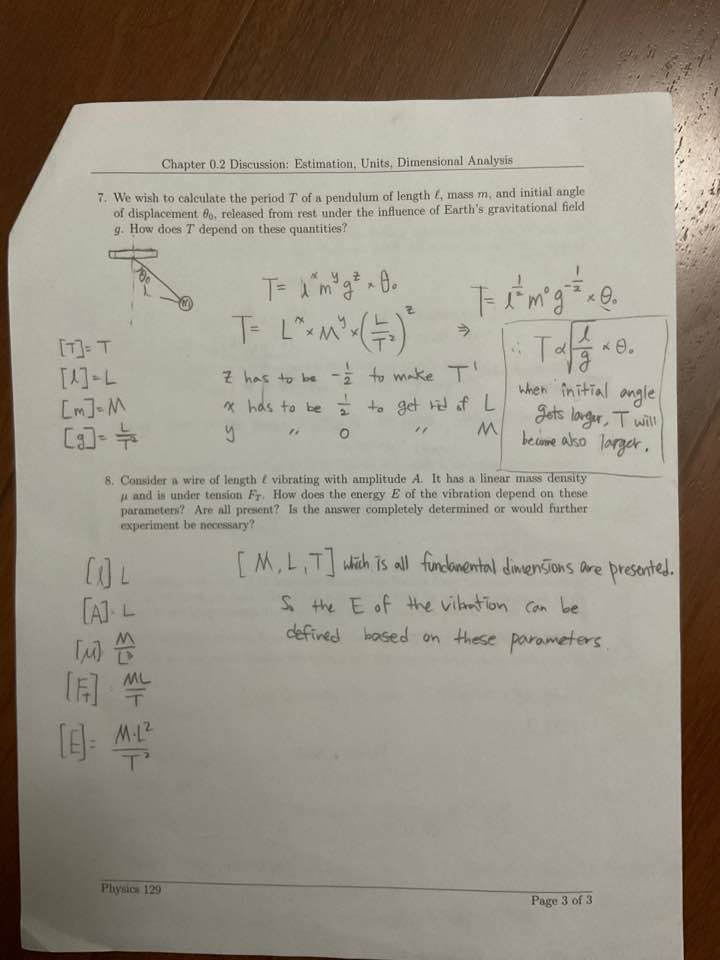 Chapter 0.2 Discussion: Estimation, Units, Dimensional Analysis
7. We wish to calculate the period T of a pendulum of length ℓ, mass m, and initial angle
of displacement θ₀, released from rest under the influence of Earth's gravitational field
g. How does T depend on these quantities?
θ₀
l
m
T= l^x m^y g^z × θ₀
T= L^x × M^y × (L/T²)^z
⇒
T= l^(1/2) m⁰ g^(-1/2) × θ₀
[T]= T
[l]= L
[m]= M
[g]= L/T²
z has to be -1/2 to make T¹
x has to be 1/2 to get rid of L
y " 0 " M
∴ T ∝ √(l/g) × θ₀
when initial angle
gets larger, T will
become also larger.
8. Consider a wire of length ℓ vibrating with amplitude A. It has a linear mass density
μ and is under tension F_T. How does the energy E of the vibration depend on these
parameters? Are all present? Is the answer completely determined or would further
experiment be necessary?
[l] L
[A]· L
[μ] M/L³
[F_T]· ML/T
[E]= M·L²/T²
[M, L, T] which is all fundamental dimensions are presented.
So the E of the vibration can be
defined based on these parameters.
Physics 129
Page 3 of 3